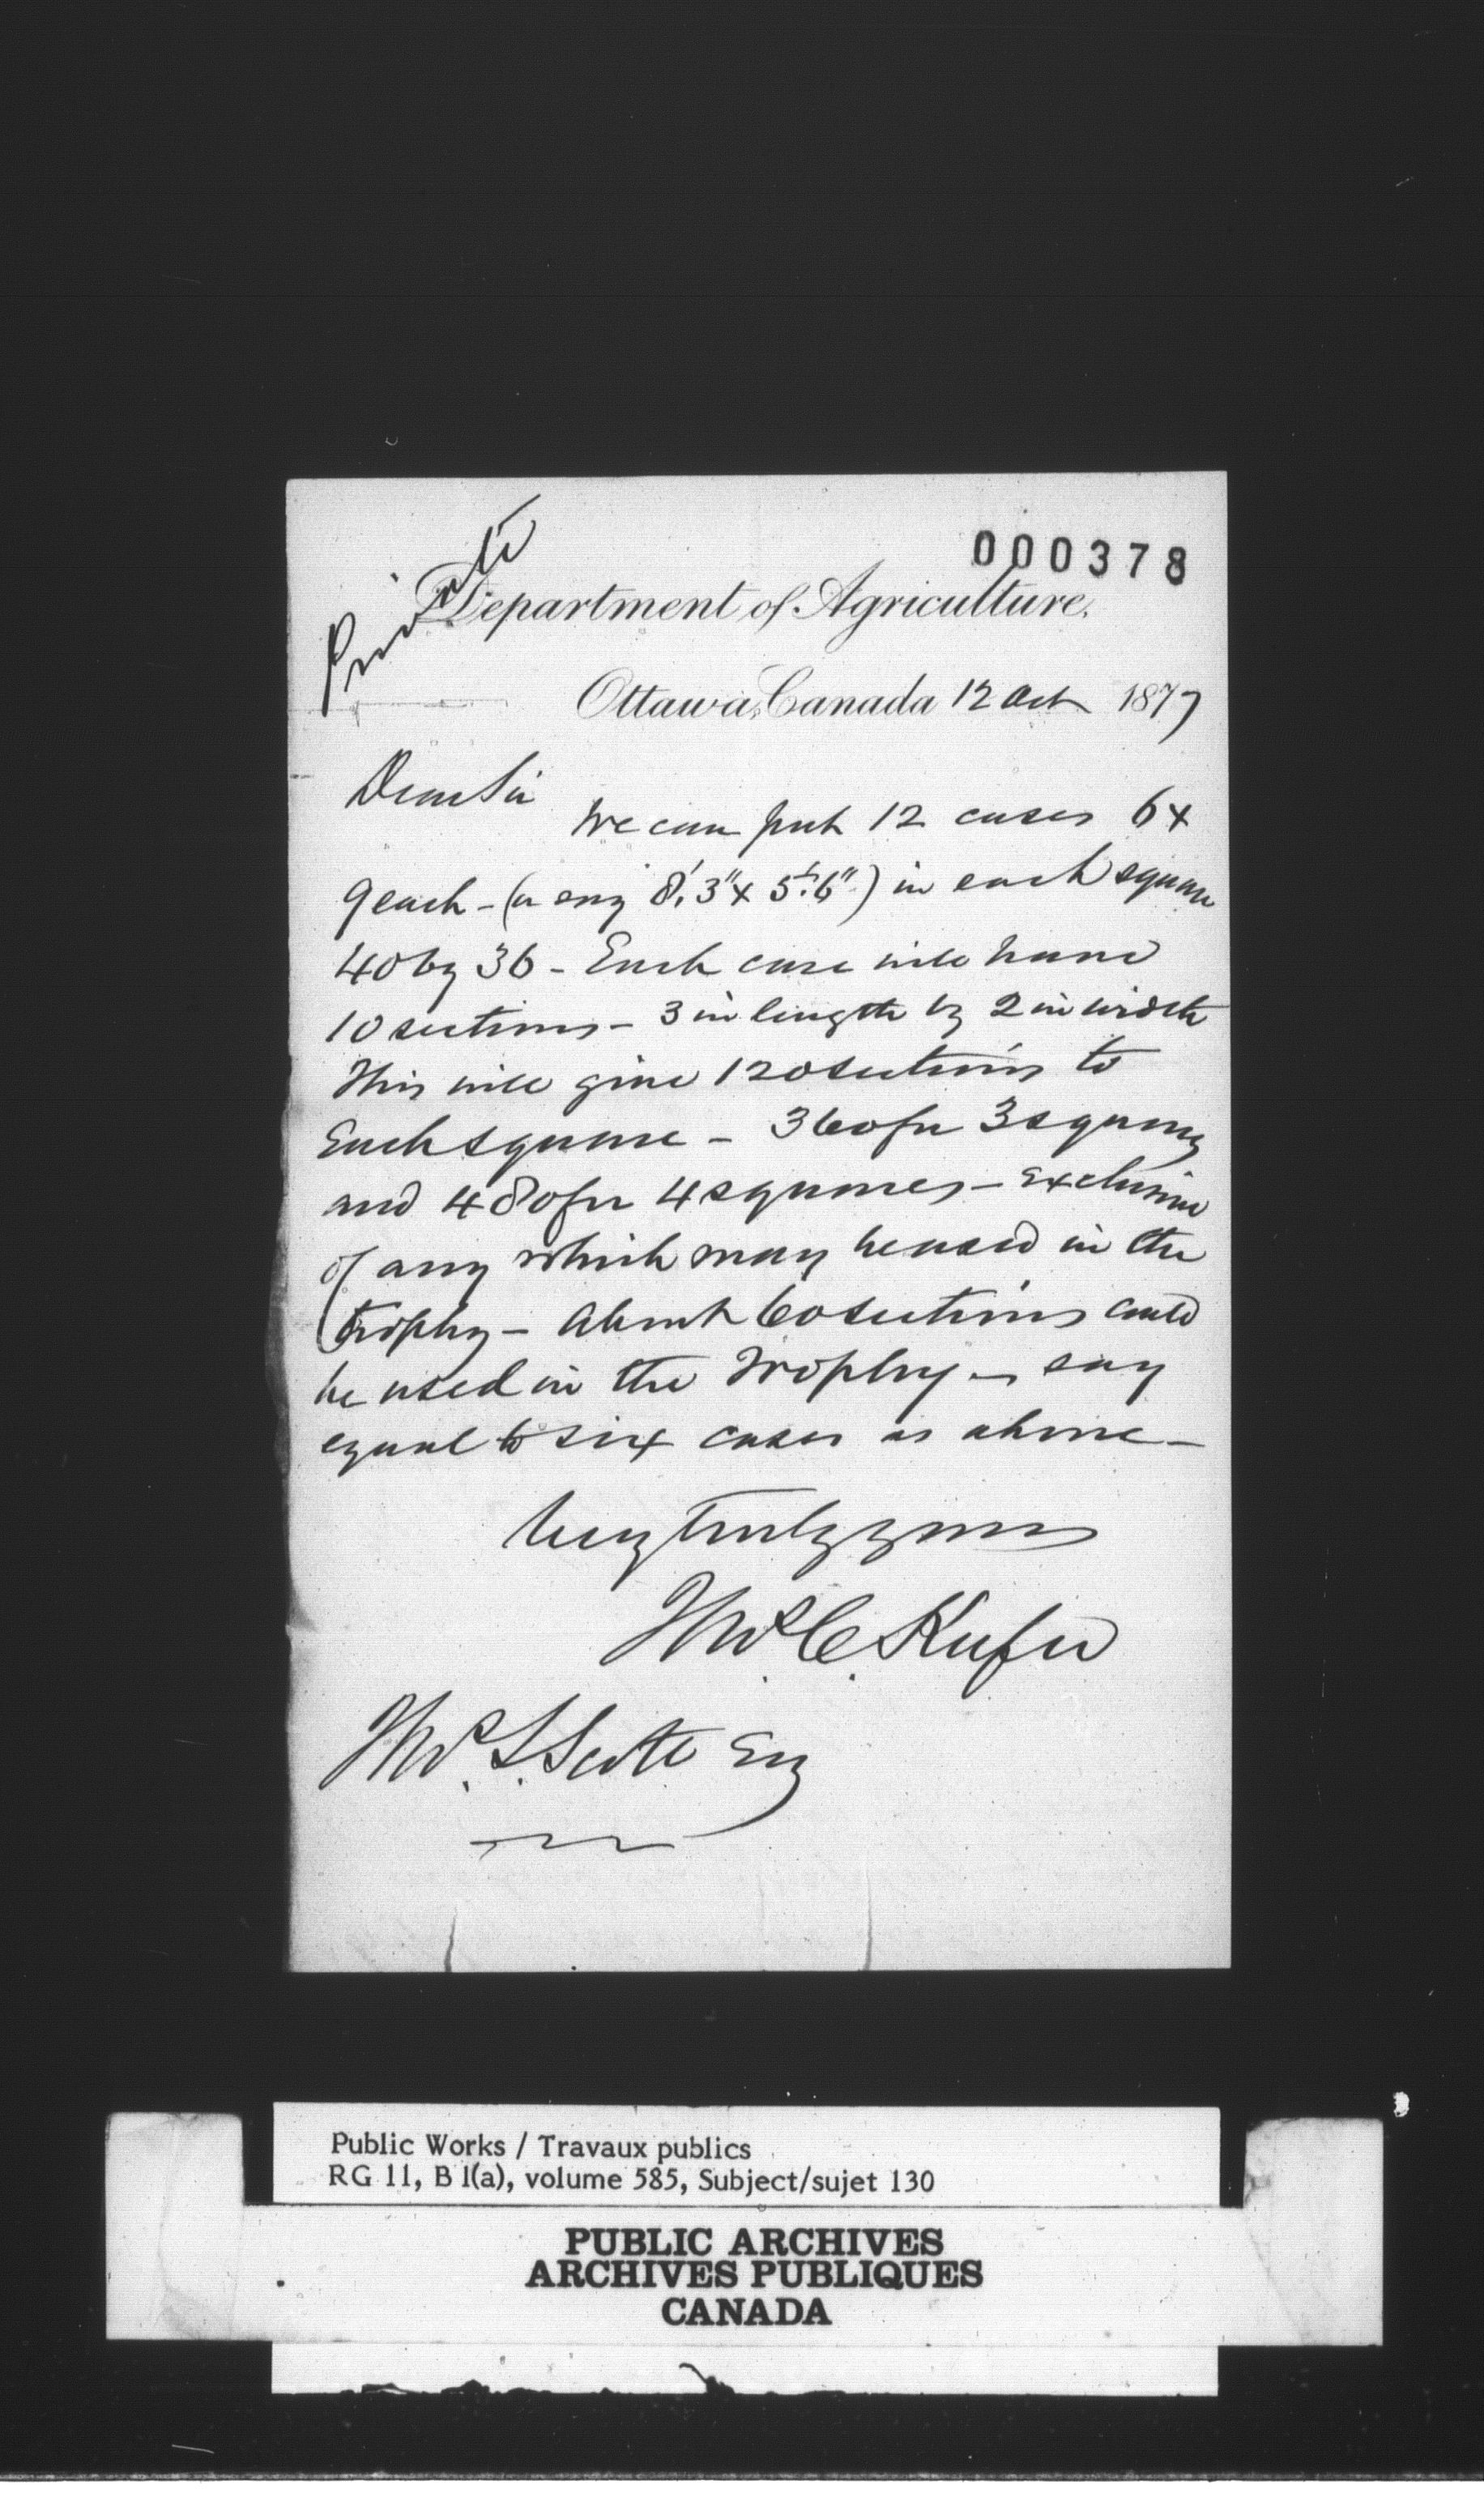 000378
Private
Department of Agriculture.
Ottawa, Canada 12 Oct 1877
Dear Sir
We can put 12 cases 6 x
9 each - (or say 8'.3" x 5'.6") in each square
40 by 36 - Each case will have
10 sections - 3 in length by 2 in width
This will give 120 sections to
Each square - 360 for 3 squares
and 480 for 4 squares - Exclusive
of any which may be used in the
trophy - About 60 sections could
be used in the Trophy - say
equal to six cases as above -
Very truly yours
Thos. C. Keefer
Thos. S. Scott Esq
Public Works / Travaux publics
RG 11, B 1(a), volume 585, Subject/sujet 130
PUBLIC ARCHIVES
ARCHIVES PUBLIQUES
CANADA